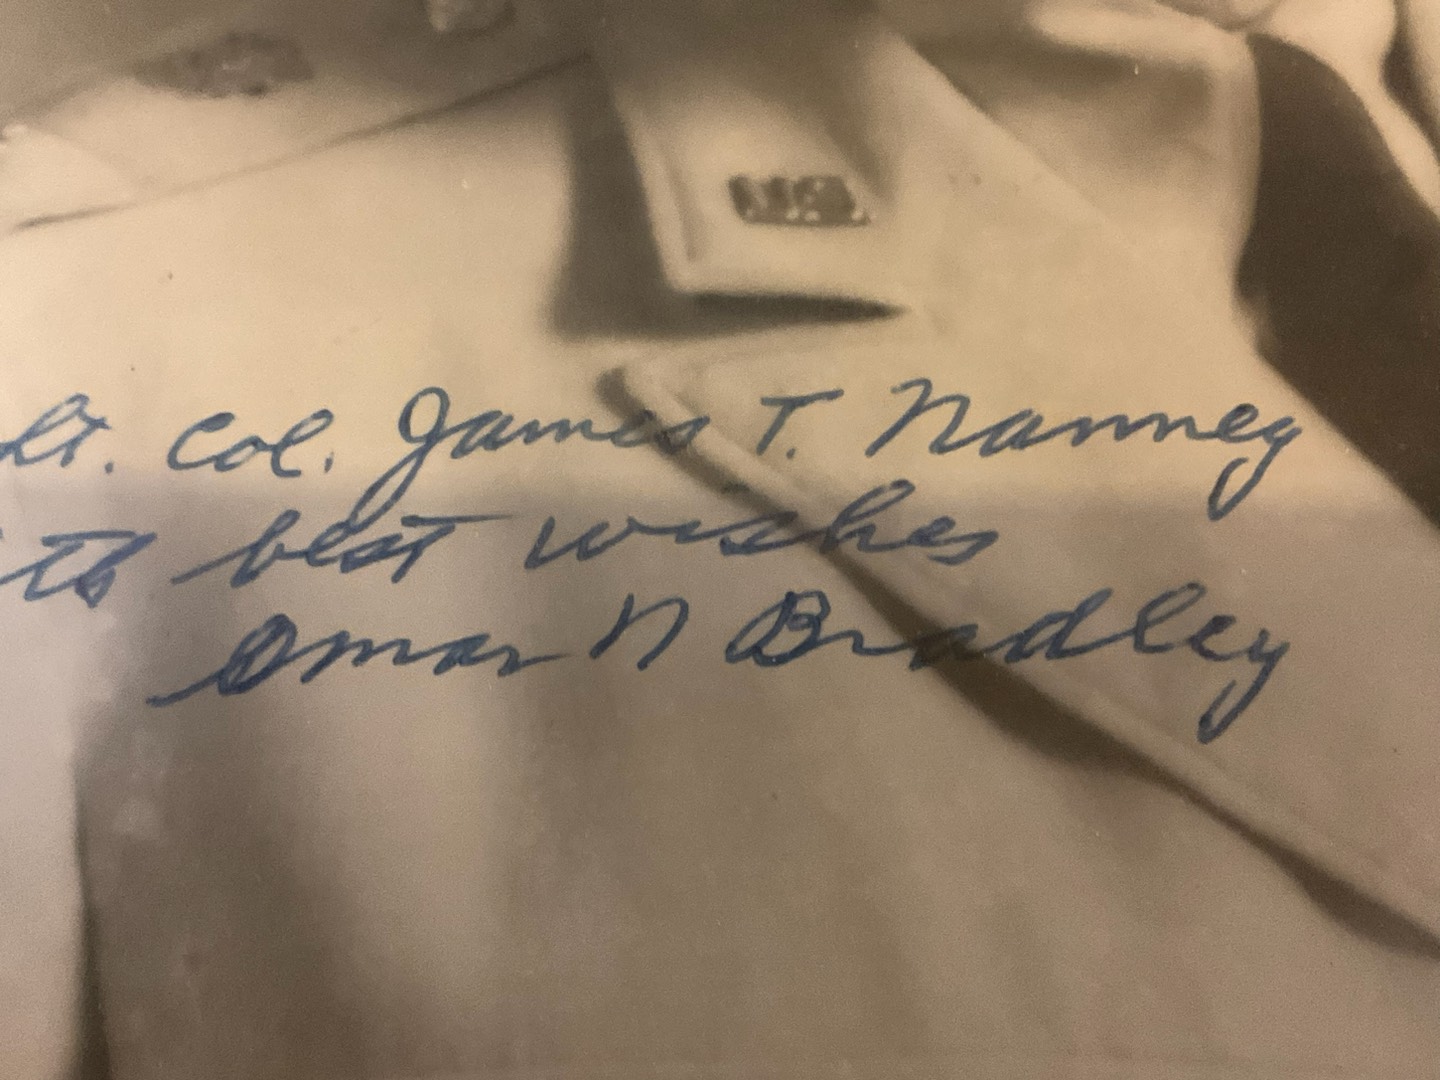 Lt. Col. James T. Nanney
ith best wishes
Omar N Bradley